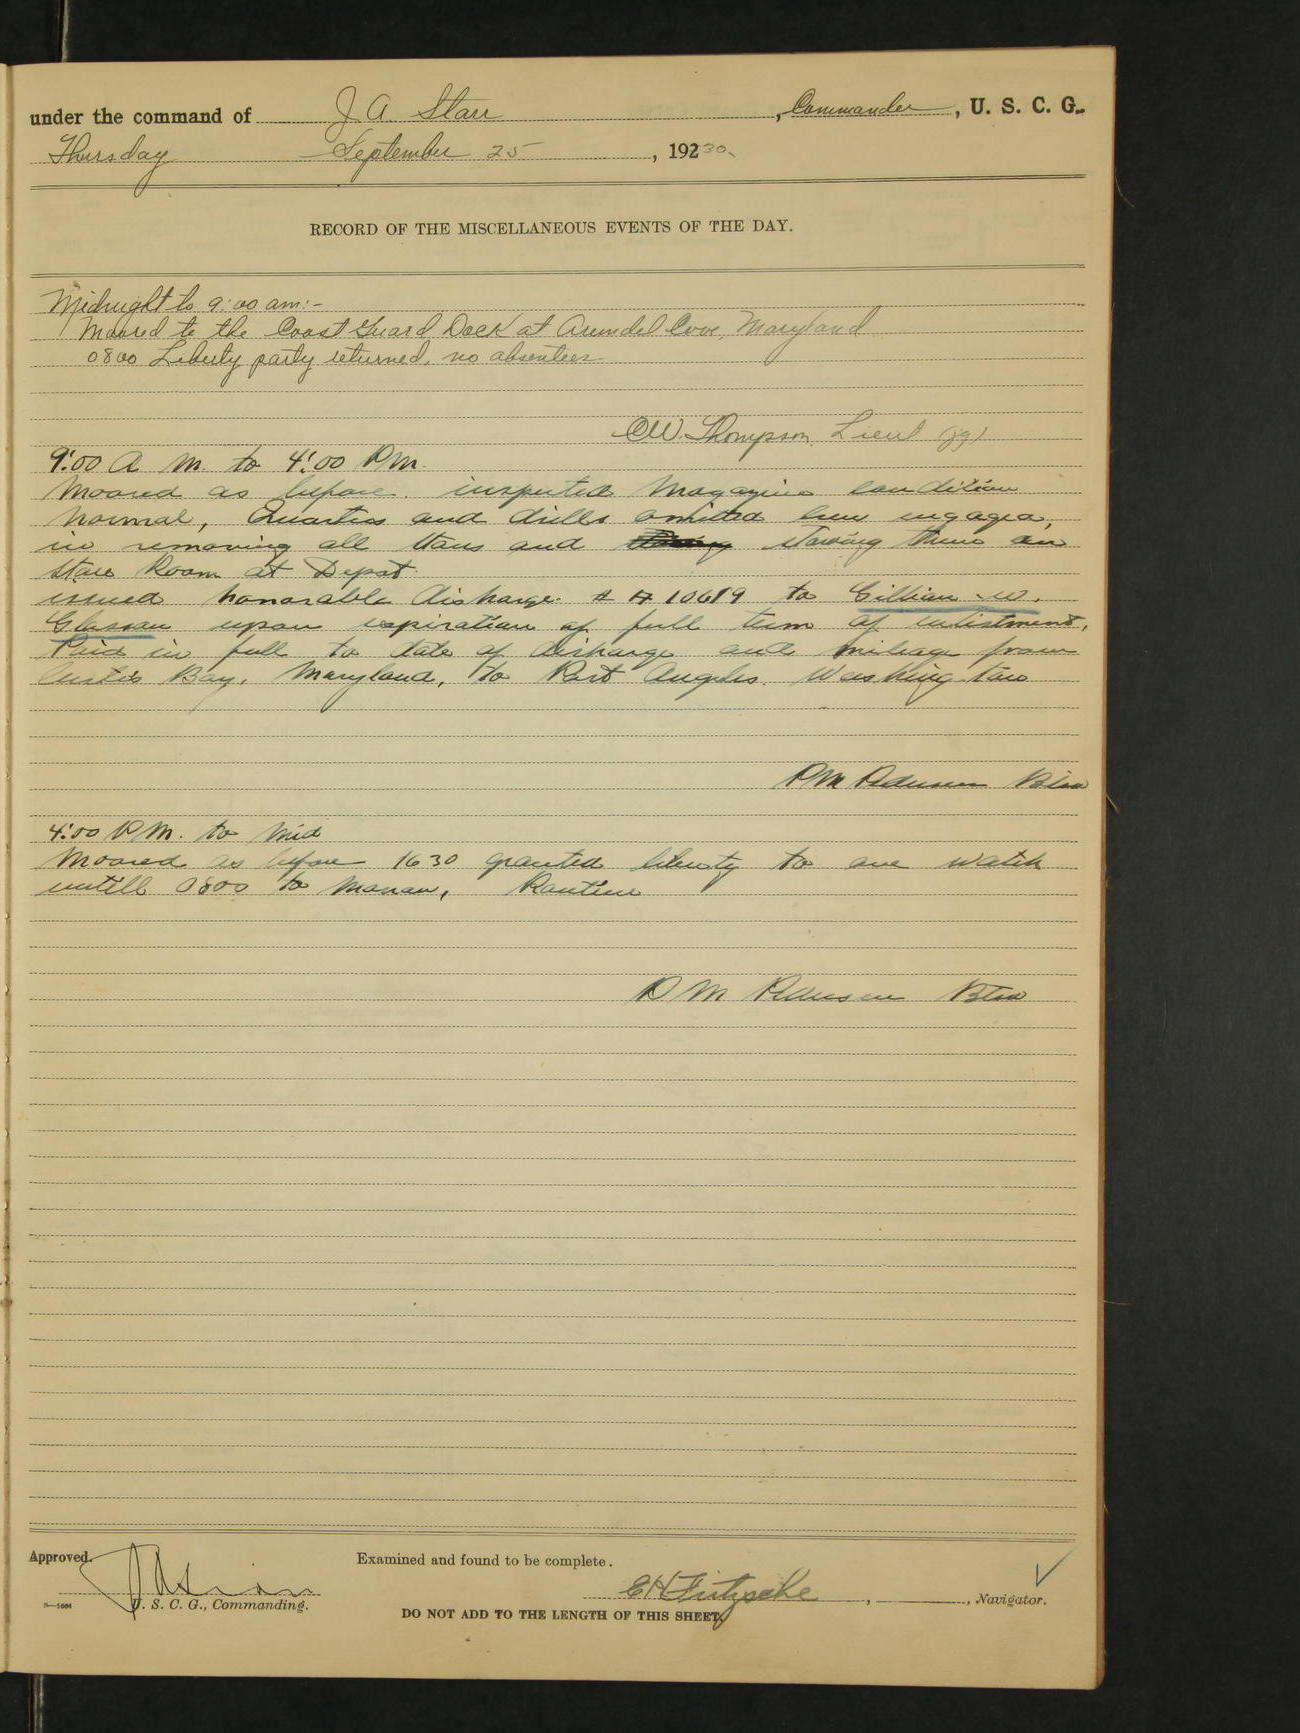 under the command of J A Starr , Commander , U. S. C. G.
Thursday September 25 , 19230
RECORD OF THE MISCELLANEOUS EVENTS OF THE DAY.
Midnight to 9:00 am:-
Moored to the Coast Guard Dock at Arundel Cove, Maryland
0800 Liberty party returned, no absentees
CW. Thompson, Lieut (jg)
9:00 A M. to 4:00 PM.
Moored as before. inspected Magazine condition
normal, Quarters and drills omitted crew engaged,
in removing all and stowing them in
store Room at Depot.
issued honorable discharge # 10619 to W.
upon expiration of full term of enlistment,
Paid in full to date of discharge and mileage from
Curtis Bay, Maryland, to Port Angeles. Washington
P M Pedersen Btsn
4:00 P.M. to Mid
Moored as before 1630 granted liberty to one watch
untill 0800 to morrow, Routine
P M Pedersen Btsn
Approved.
Examined and found to be complete.
U. S. C. G., Commanding.
E H Fritzsche , , Navigator.
DO NOT ADD TO THE LENGTH OF THIS SHEET.